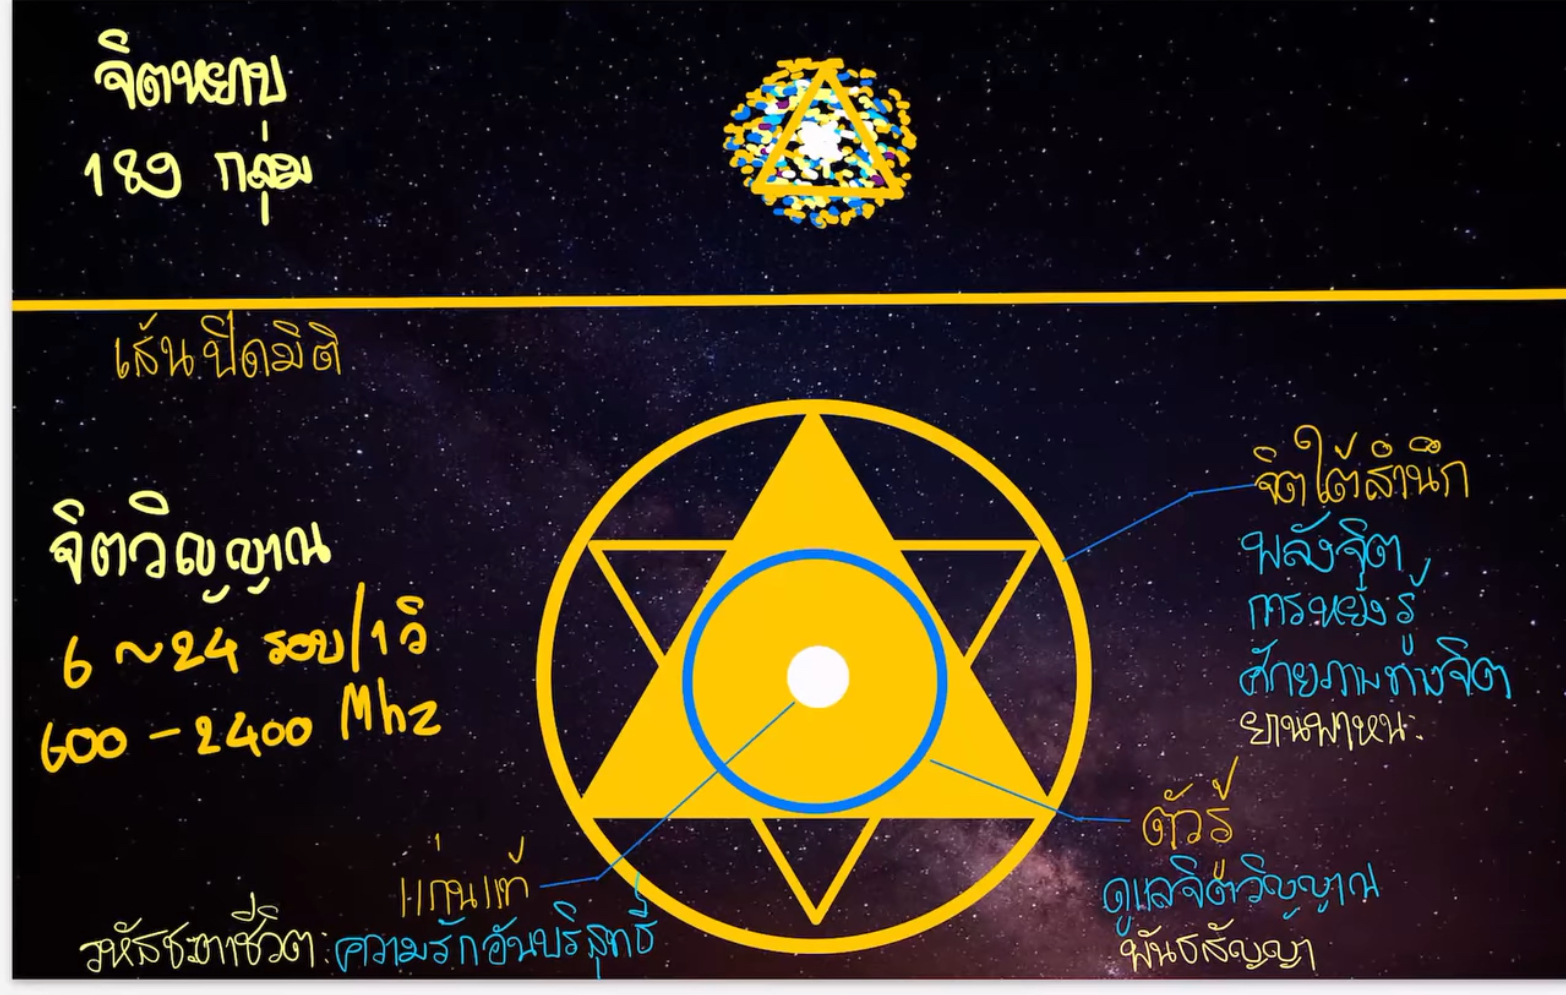 จิตหยาบ
189 กลุ่ม
เส้นปิดมิติ
จิตวิญญาณ
6 ~ 24 รอบ/1 วิ
600 - 2400 Mhz
จิตใต้สำนึก
พลังจิต
การหยั่งรู้
ศักยภาพทางจิต
ยานพาหนะ
ตัวรู้
ดูแลจิตวิญญาณ
พันธสัญญา
แก่นแท้
รหัสชะตาชีวิต: ความรักอันบริสุทธิ์